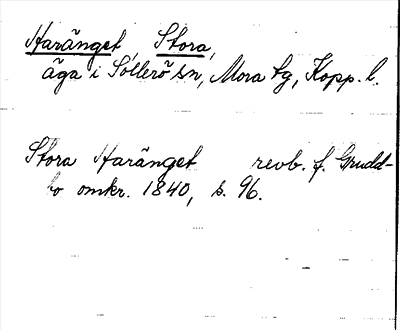 Haränget, Stora,
äga i Sollerö sn, Mora tg, Kopp. l.
Stora Haränget revb. f. Grudd-
bo omkr. 1840, s. 96.